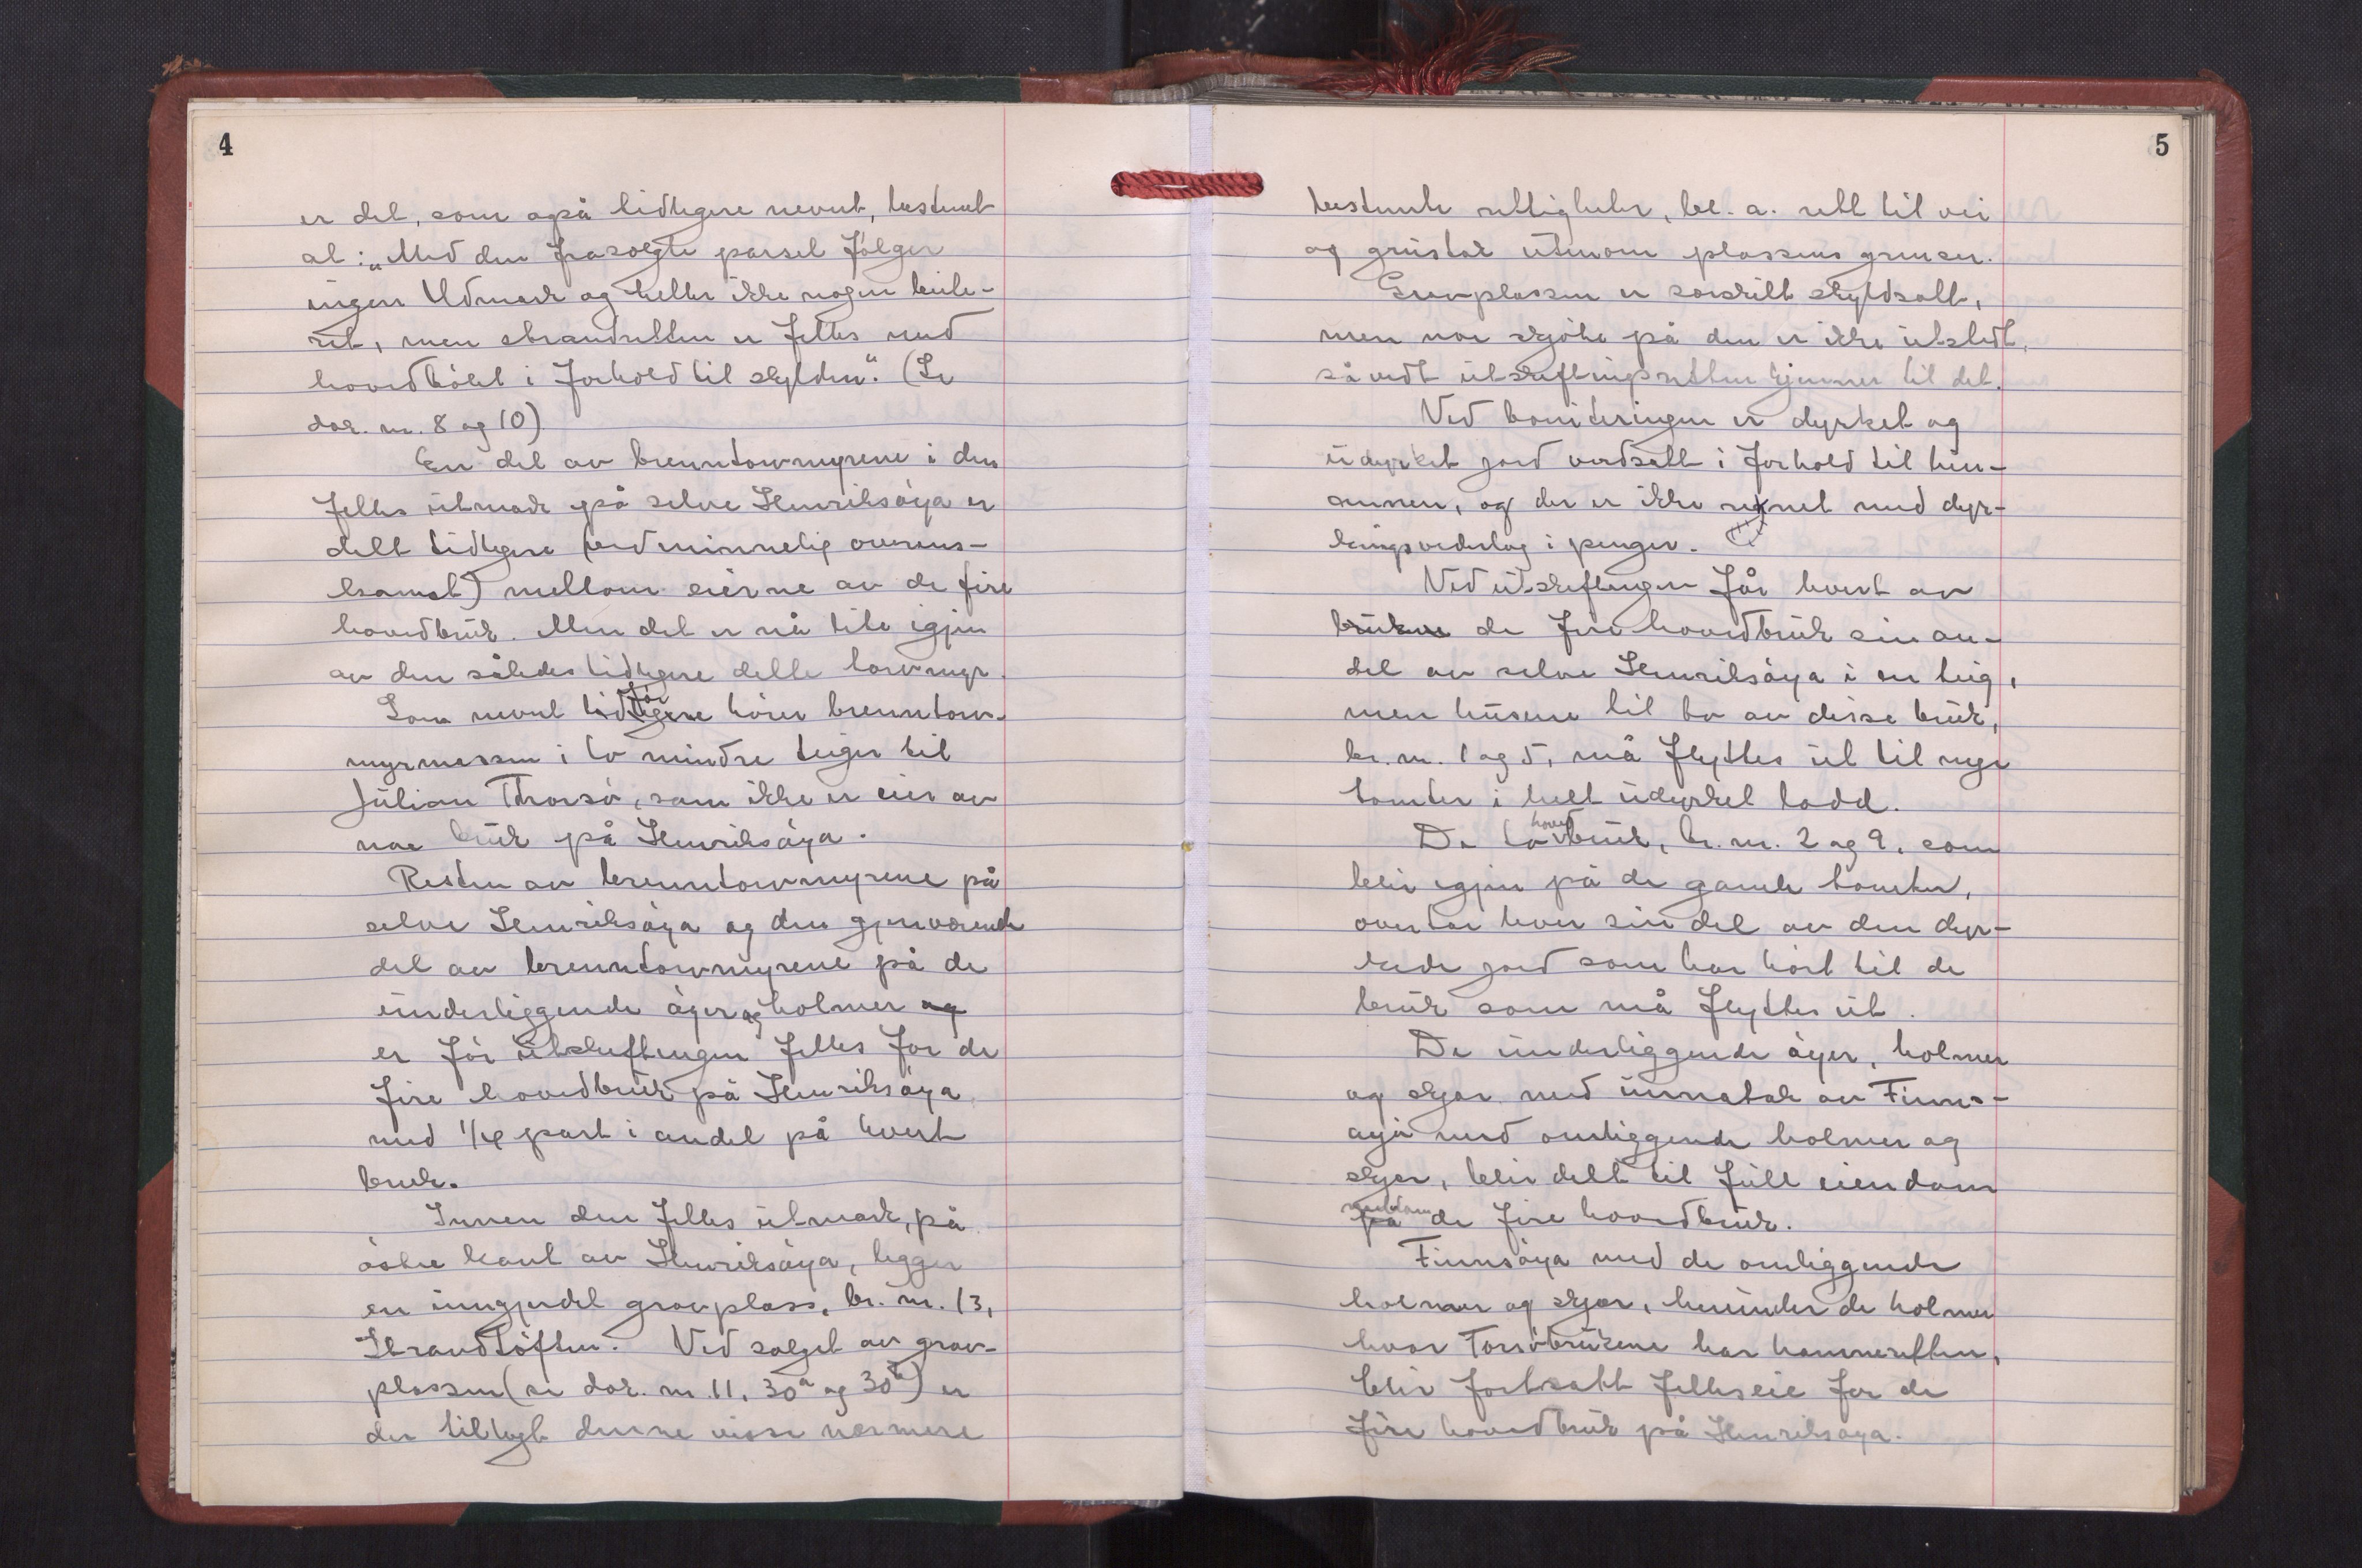 4
er det, som også tidligere nevnt, bestemt
at: „Med den frasolgte parsel følger
ingen Udmark og heller ikke nogen beite-
ret, men strandretten er felles med
hovedbølet i forhold til skylden." (Se
dok. nr. 8 og 10)
En del av brenntorvmyrene i den
felles utmark på selve Henriksøya er
delt tidligere (ved minnelig overens-
komst) mellom eierne av de fire
hovedbruk. Men det er nå lite igjen
av den således tidligere delte torvmyr.
Som nevnt før hører brenntorv-
myrmassen i to mindre teiger til
Julian Thorsø, som ikke er eier av
noe bruk på Henriksøya.
Resten av brenntorvmyrene på
selve Henriksøya og den gjenværende
del av brenntorvmyrene på de
underliggende øyer og holmer
er før utskiftingen felles for de
fire hovedbruk på Henriksøya
med 1/4 part i andel på hvert
bruk.
Innen den felles utmark, på
østre kant av Henriksøya, ligger
en inngjerdet gravplass, br. nr. 13,
Strandtoften. Ved salget av grav-
plassen (se dok. nr. 11, 30a og 30b) er
der tillagt denne visse nærmere
5
bestemte rettigheter, bl. a. rett til vei
og grustak utenom plassens grenser.
Gravplassen er særskilt skyldsatt,
men noe skjøte på den er ikke utstedt,
såvidt utskiftingsretten kjenner til det.
Ved boniteringen er dyrket og
udyrket jord verdsatt i forhold til hin-
annen, og der er ikke regnet med dyr-
kingsvederlag i penger.
Ved utskiftingen får hvert av
de fire hovedbruk sin an-
del av selve Henriksøya i en teig,
men husene til to av disse bruk,
br. nr. 1 og 5, må flyttes ut til nye
tomter i helt udyrket lodd.
De to hovedbruk, br. nr. 2 og 9, som
blir igjen på de gamle tomter,
overtar hver sin del av den dyr-
kede jord som har hørt til de
bruk som må flyttes ut.
De underliggende øyer, holmer
og skjær med unntak av Finns-
øya med omliggende holmer og
skjær, blir delt til full eiendom
mellom de fire hovedbruk.
Finnsøya med de omliggende
holmer og skjær, herunder de holmer
hvor Torsøbrukene har hamneretten,
blir fortsatt felleseie for de
fire hovedbruk på Henriksøya.